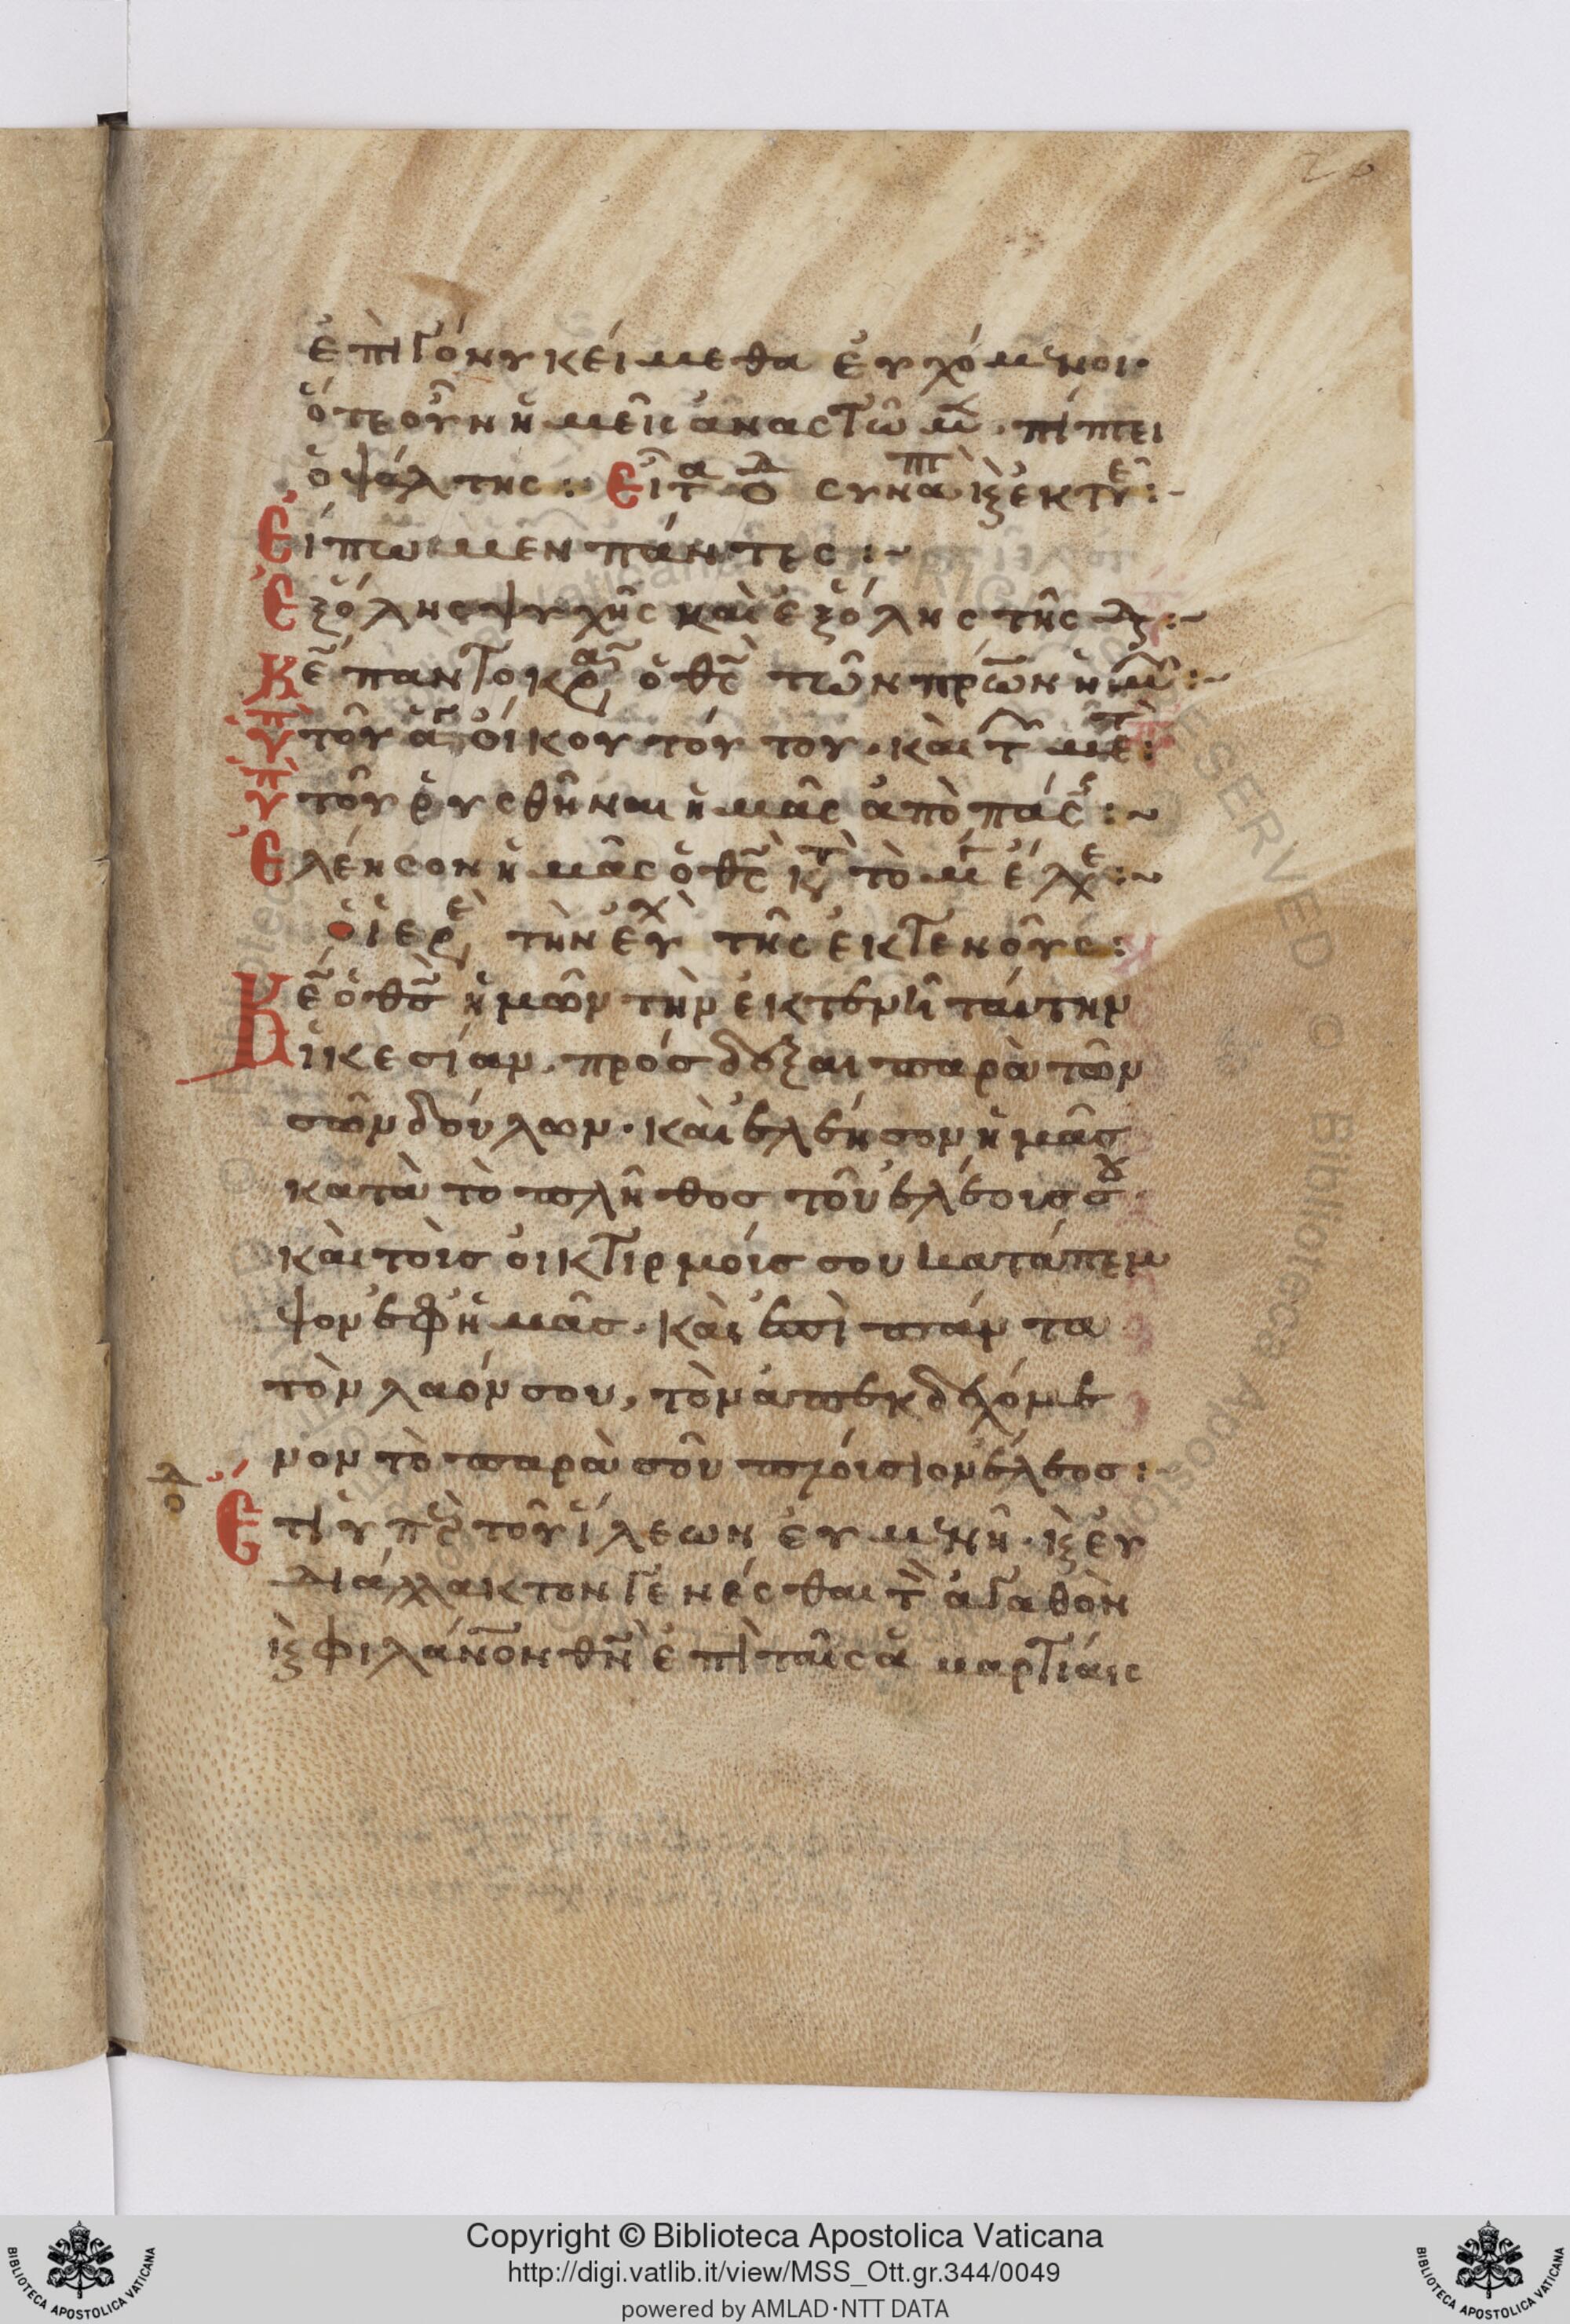 ἐπὶ γόνυ κείμεθα εὐχόμενοι·
ὅτε οὖν ἡμεῖς ἀναστῶμ· πίπτει
ὁ ψάλτης: Εἶτα ὁ συναπ κ ἐκτε:~
Εἴπωμεν πάντες:~
Ἐξ ὅλης ψυχῆς καὶ ἐξ ὅλης τῆς δ:~
Κε παντοκρα ὁ θς τῶν πρων ἡμ:~
Ὑπ τοῦ ἁγ οἴκου τούτου· καὶ τ
Ὑπ τοῦ ῥυσθῆναι ἡμᾶς ἀπὸ πάσ:~
Ἐλέησον ἡμᾶς ὁ θς κτ τὸ μ ἔλε:~
ὁ ἱερε τὴν εὐχ τῆς ἐκτενοῦς:
Κε ὁ θς ἡμῶν τὴν ἐκτενῆ ταύτην
ἱκεσίαν, πρόσδεξαι παρὰ τῶν
σῶν δούλων· καὶ ἐλέησον ἡμᾶς
κατὰ τὸ πλῆθος τοῦ ἐλέους σου·
καὶ τοῖς οἰκτιρμοῖς σου κατάπεμ
ψον ἐφ ἡμᾶς· καὶ ἐπὶ πάντα
τὸν λαόν σου, τὸν ἀπεκδεχόμε
νον τὸ παρὰ σοῦ πλούσιον ἔλεος:
δο
Ἔτι ὑπὲρ τοῦ ἵλεων εὐμενῆ· κ εὐ
διάλλακτον γενέσθαι τὸν ἀγαθὸν
κ φιλάνον θν ἐπὶ ταῖς ἁμαρτίαις
Copyright © Biblioteca Apostolica Vaticana
http://digi.vatlib.it/view/MSS_Ott.gr.344/0049
powered by AMLAD·NTT DATA
BIBLIOTECA APOSTOLICA VATICANA
BIBLIOTECA APOSTOLICA VATICANA